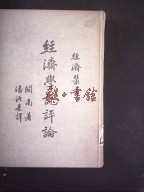 經濟叢書
經濟學說評論
開南著
潘源來譯
書館